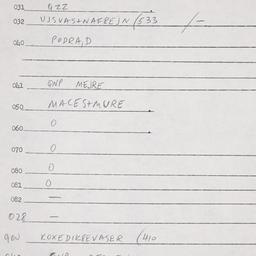 031 GZZ
032 UJSVAS+NAFREJN (533 /-
040 PODRA,D
041 GWP MEJRE
050 MACES+MURE
060 0
070 0
080 0
081 0
082 —
028 —
900 KOXEDIKREVASER (410